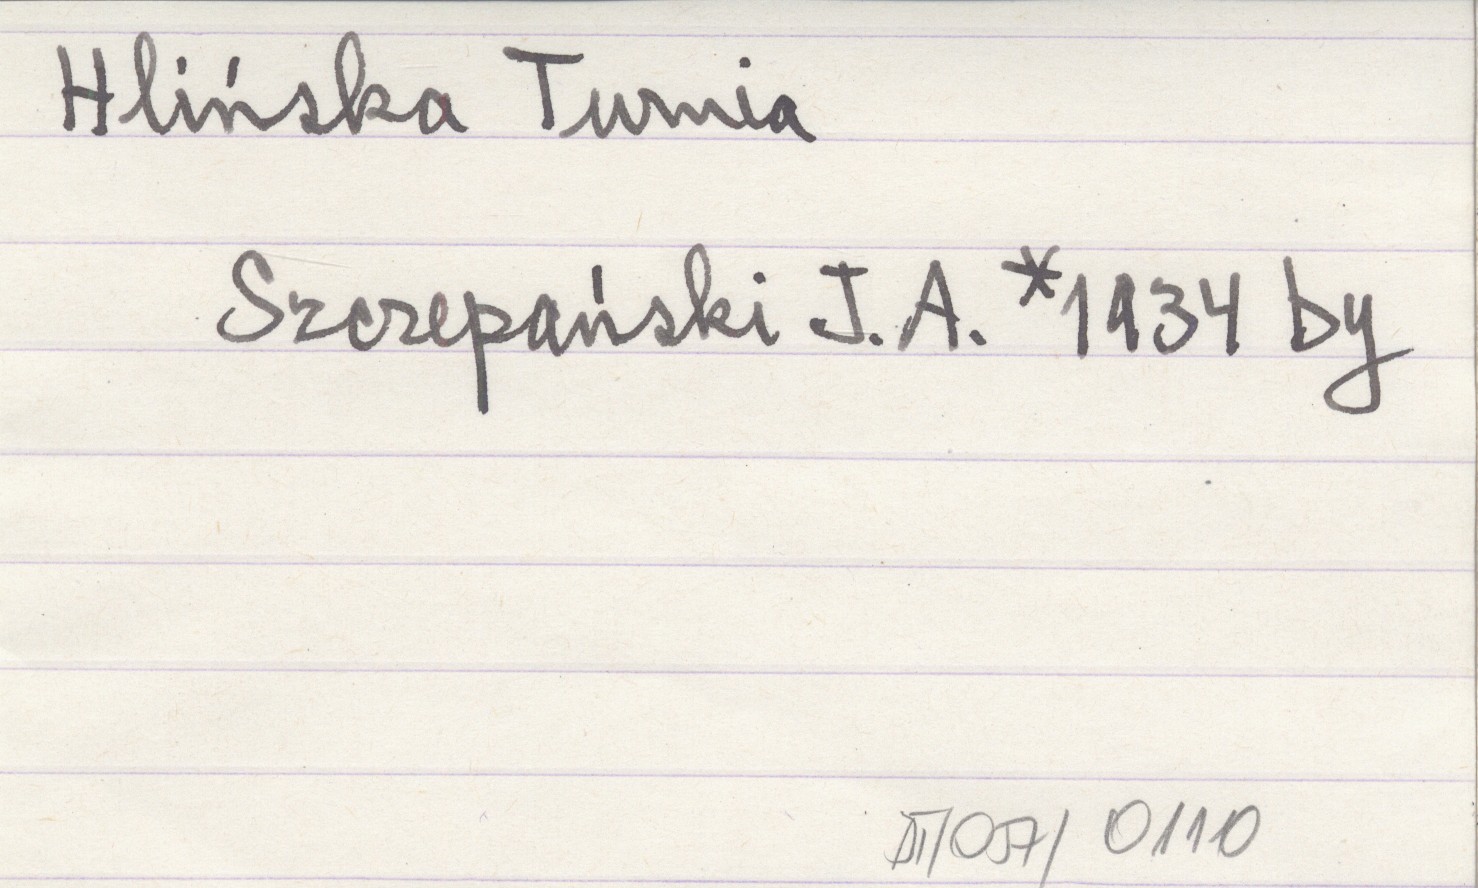 Hlińska Turnia
Szczepański J.A. *1934 by
III/057/ 0110